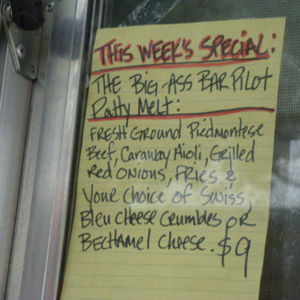 THIS WEEK'S SPECIAL:
THE BIG-ASS BAR PILOT
Patty MELT:
FRESH GROUND PIEDMONTESE
BEEF, CARAWAY AIOLI, GRILLED
RED ONIONS, FRIES &
YOUR CHOICE OF SWISS,
BLEU CHEESE CRUMBLES OR
BECHAMEL CHEESE. $9